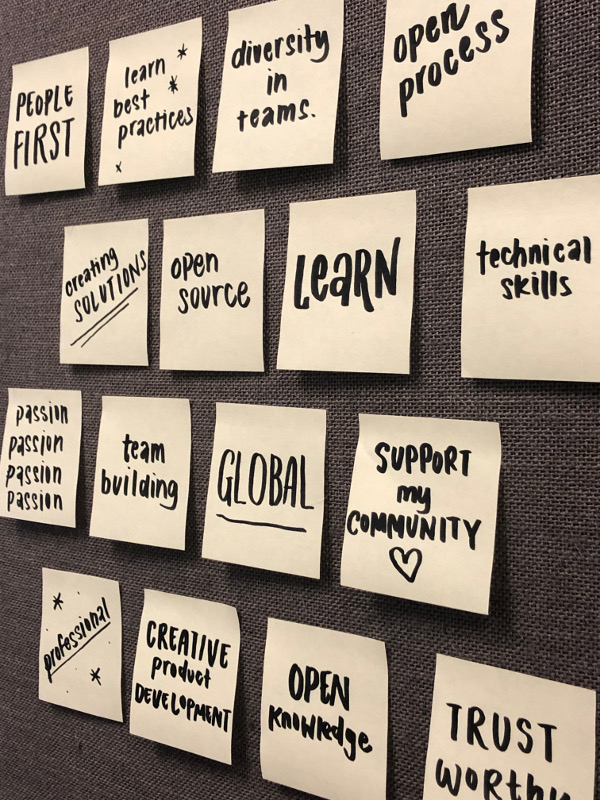 PEOPLE
FIRST
learn
best
practices
diversity
in
teams.
open
process
creating
SOLUTIONS
open
source
LeaRN
technical
skills
passion
passion
passion
passion
team
building
GLOBAL
SUPPORT
my
COMMUNITY
professional
CREATIVE
product
DEVELOPMENT
OPEN
knowledge
TRUST
worthy